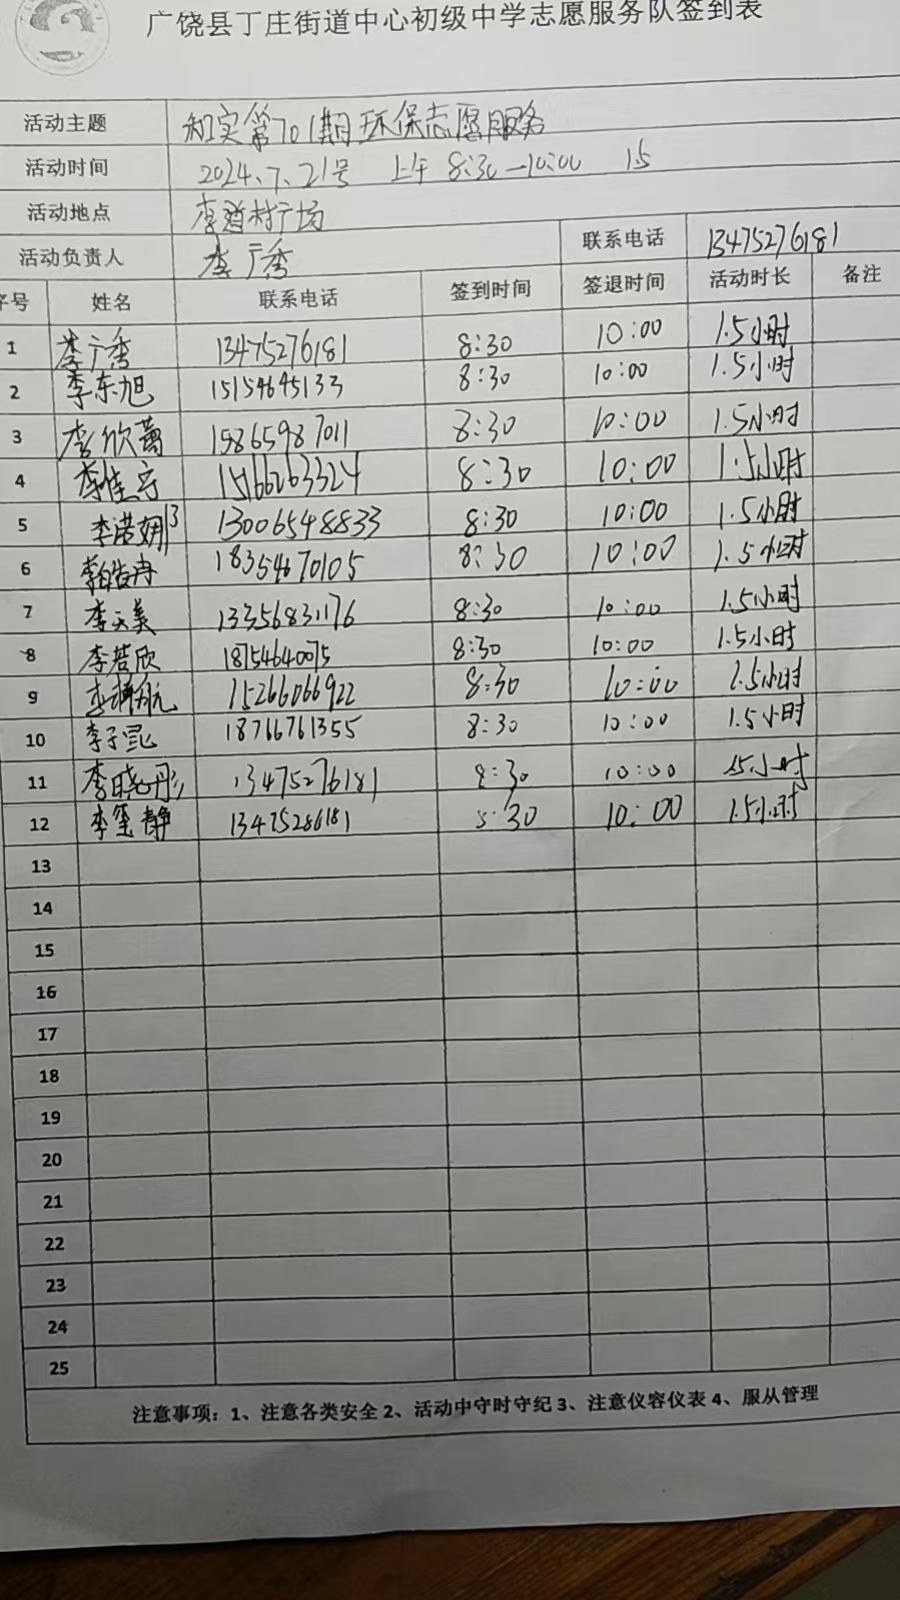 广饶县丁庄街道中心初级中学志愿服务队签到表
活动主题 知实第701期环保志愿服务
活动时间 2024.7.21号 上午 8:30—10:00 1.5
活动地点 李道村广场
活动负责人 李广秀 联系电话 13475276181
序号 姓名 联系电话 签到时间 签退时间 活动时长 备注
1 李广秀 13475276181 8:30 10:00 1.5小时
2 李东旭 15154645133 8:30 10:00 1.5小时
3 李欣蔷 15865987011 8:30 10:00 1.5小时
4 李佳宁 15166263324 8:30 10:00 1.5小时
5 李诺妍 13006548833 8:30 10:00 1.5小时
6 18354670105 8:30 10:00 1.5小时
7 李文美 13356831176 8:30 10:00 1.5小时
8 李若欣 18754640075 8:30 10:00 1.5小时
9 15266066922 8:30 10:00 1.5小时
10 李子昆 18766761355 8:30 10:00 1.5小时
11 李晓彤 13475276181 8:30 10:00 1.5小时
12 李玺静 13475286181 8:30 10:00 1.5小时
13
14
15
16
17
18
19
20
21
22
23
24
25
注意事项：1、注意各类安全 2、活动中守时守纪 3、注意仪容仪表 4、服从管理